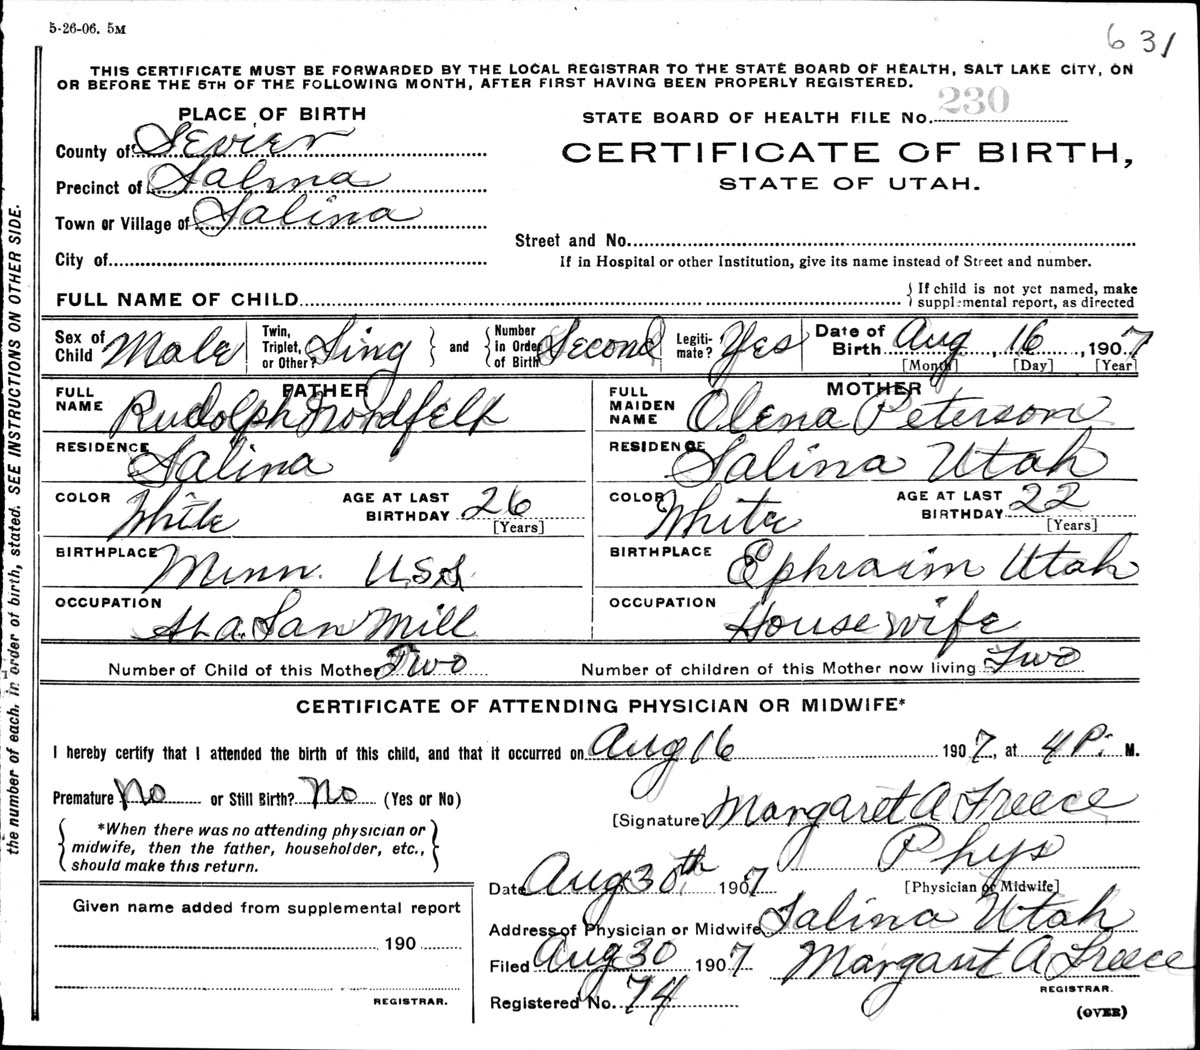 5-26-06. 5M
631
THIS CERTIFICATE MUST BE FORWARDED BY THE LOCAL REGISTRAR TO THE STATE BOARD OF HEALTH, SALT LAKE CITY, ON
OR BEFORE THE 5TH OF THE FOLLOWING MONTH, AFTER FIRST HAVING BEEN PROPERLY REGISTERED.
PLACE OF BIRTH
STATE BOARD OF HEALTH FILE No. 230
County of Sevier
CERTIFICATE OF BIRTH,
Precinct of Salina
STATE OF UTAH.
Town or Village of Salina
Street and No.
City of
If in Hospital or other Institution, give its name instead of Street and number.
FULL NAME OF CHILD
{ If child is not yet named, make
supplemental report, as directed
Sex of Child Male Twin, Triplet, or Other? Sing } and { Number in Order of Birth Second Legiti-mate? Yes Date of Birth Aug, 16, 1907
[Month] [Day] [Year]
FATHER MOTHER
FULL NAME Rudolph Nordfelt FULL MAIDEN NAME Olena Peterson
RESIDENCE Salina RESIDENCE Salina Utah
COLOR White AGE AT LAST BIRTHDAY 26 [Years] COLOR White AGE AT LAST BIRTHDAY 22 [Years]
BIRTHPLACE Minn. U.S.A. BIRTHPLACE Ephraim Utah
OCCUPATION Mill OCCUPATION Housewife
Number of Child of this Mother Two Number of children of this Mother now living Two
CERTIFICATE OF ATTENDING PHYSICIAN OR MIDWIFE*
I hereby certify that I attended the birth of this child, and that it occurred on Aug 16 1907, at 4 P. M.
Premature No or Still Birth? No (Yes or No)
[Signature] Margaret A Freece
{ *When there was no attending physician or
midwife, then the father, householder, etc.,
should make this return. }
Phys
[Physician or Midwife]
Date Aug 30th, 1907
Given name added from supplemental report
Address of Physician or Midwife Salina Utah
190
Filed Aug 30 1907 Margaret A Freece
REGISTRAR.
REGISTRAR.
Registered No. 74
(OVER)
the number of each, in order of birth, stated. SEE INSTRUCTIONS ON OTHER SIDE.